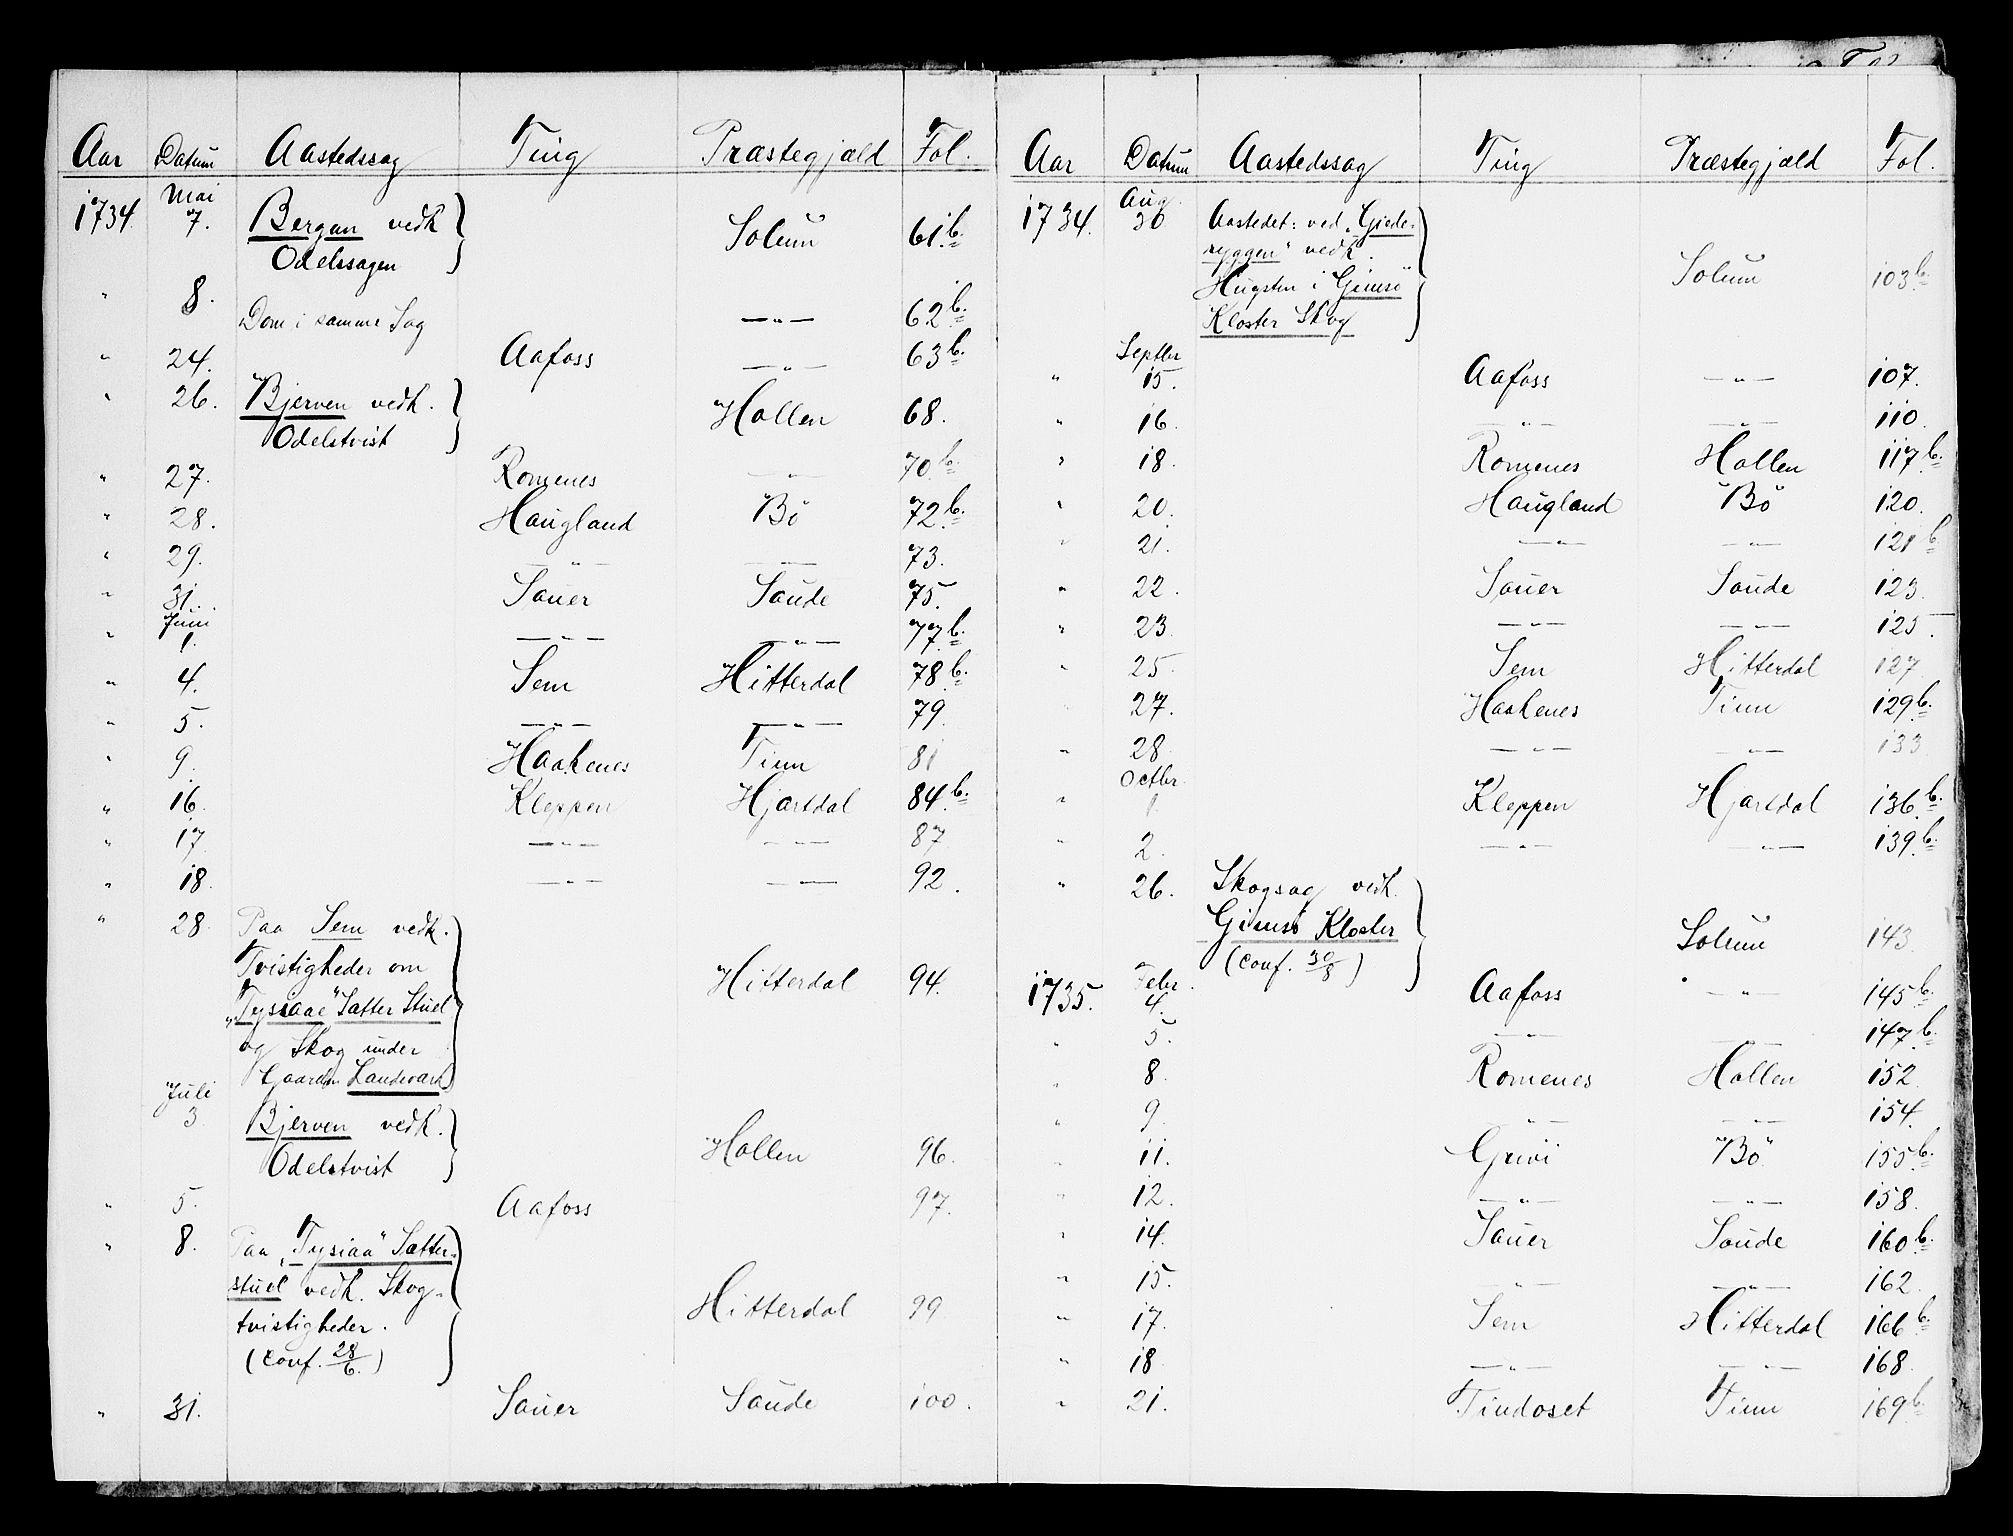 Aar Datum Aastedssag Ting Præstegjæld Fol.
1734. Mai 7. Bergan vedk Odelssagen Solum 61.b.
" 8. Dom i samme Sag —"— 62.b.
" 24. Aafoss —"— 63.b.
" 26. Bjerven vedk. Odelstvist Hollen 68.
" 27. Romenes —"— 70.b.
" 28. Haugland Bö 72.b.
" 29. —"— —"— 73.
" 31. Sauer Saude 75.
" Juni 1. —"— —"— 77.b.
" 4. Sem Hitterdal 78.b.
" 5. —"— —"— 79.
" 9. Haakenes Tinn 81
" 16. Kleppen Hjartdal 84.b.
" 17. —"— —"— 87
" 18. —"— —"— 92.
" 28. Paa Sem vedk.
Tvistigheder om
„Tyssaae" Sætter Stuel Hitterdal 94.
og Skog under
Gaarden Landsvark
Juli 3 Bjerven vedk.
Odelstvist Hollen 96.
" 5. Aafoss 97.
" 8. Paa „Tysiaa" Sætter-
stuel vedk. Skog- Hitterdal 99
tvistigheder.
(conf. 28/6.)
" 31. Sauer Saude 100.
Aar Datum Aastedssag Ting Præstegjæld Fol.
1734. Aug. 30. Aastedet: ved „Giede-
ryggen" vedk.
Hugsten i Gimsö Solum 103.b.
Kloster Skog
" Septbr 15. Aafoss —"— 107.
" 16. —"— —"— 110.
" 18. Romenes Hollen 117.b.
" 20. Haugland Bö 120.
" 21. —"— —"— 121.b
" 22. Sauer Saude 123.
" 23. —"— —"— 125.
" 25. Sem Hitterdal 127.
" 27. Haakenes Tinn 129.b.
" 28. —"— —"— 133.
" Octbr. 1 Kleppen Hjartdal 136.b.
" 2. —"— —"— 139.b.
" 26. Skogsag vedk.
Gimsö Kloster Solum 143.
(conf. 30/8)
1735. Febr. 4. Aafoss —"— 145.b.
" 5. —"— —"— 147.b.
" 8. Romenes Hollen 152.
" 9. —"— —"— 154.
" 11. Grivi Bö 155.b.
" 12. —"— —"— 158.
" 14. Sauer Saude 160.b.
" 15. —"— —"— 162.
" 17. Sem Hitterdal 166.b.
" 18. —"— —"— 168.
" 21. Tindoset Tinn 169.b.